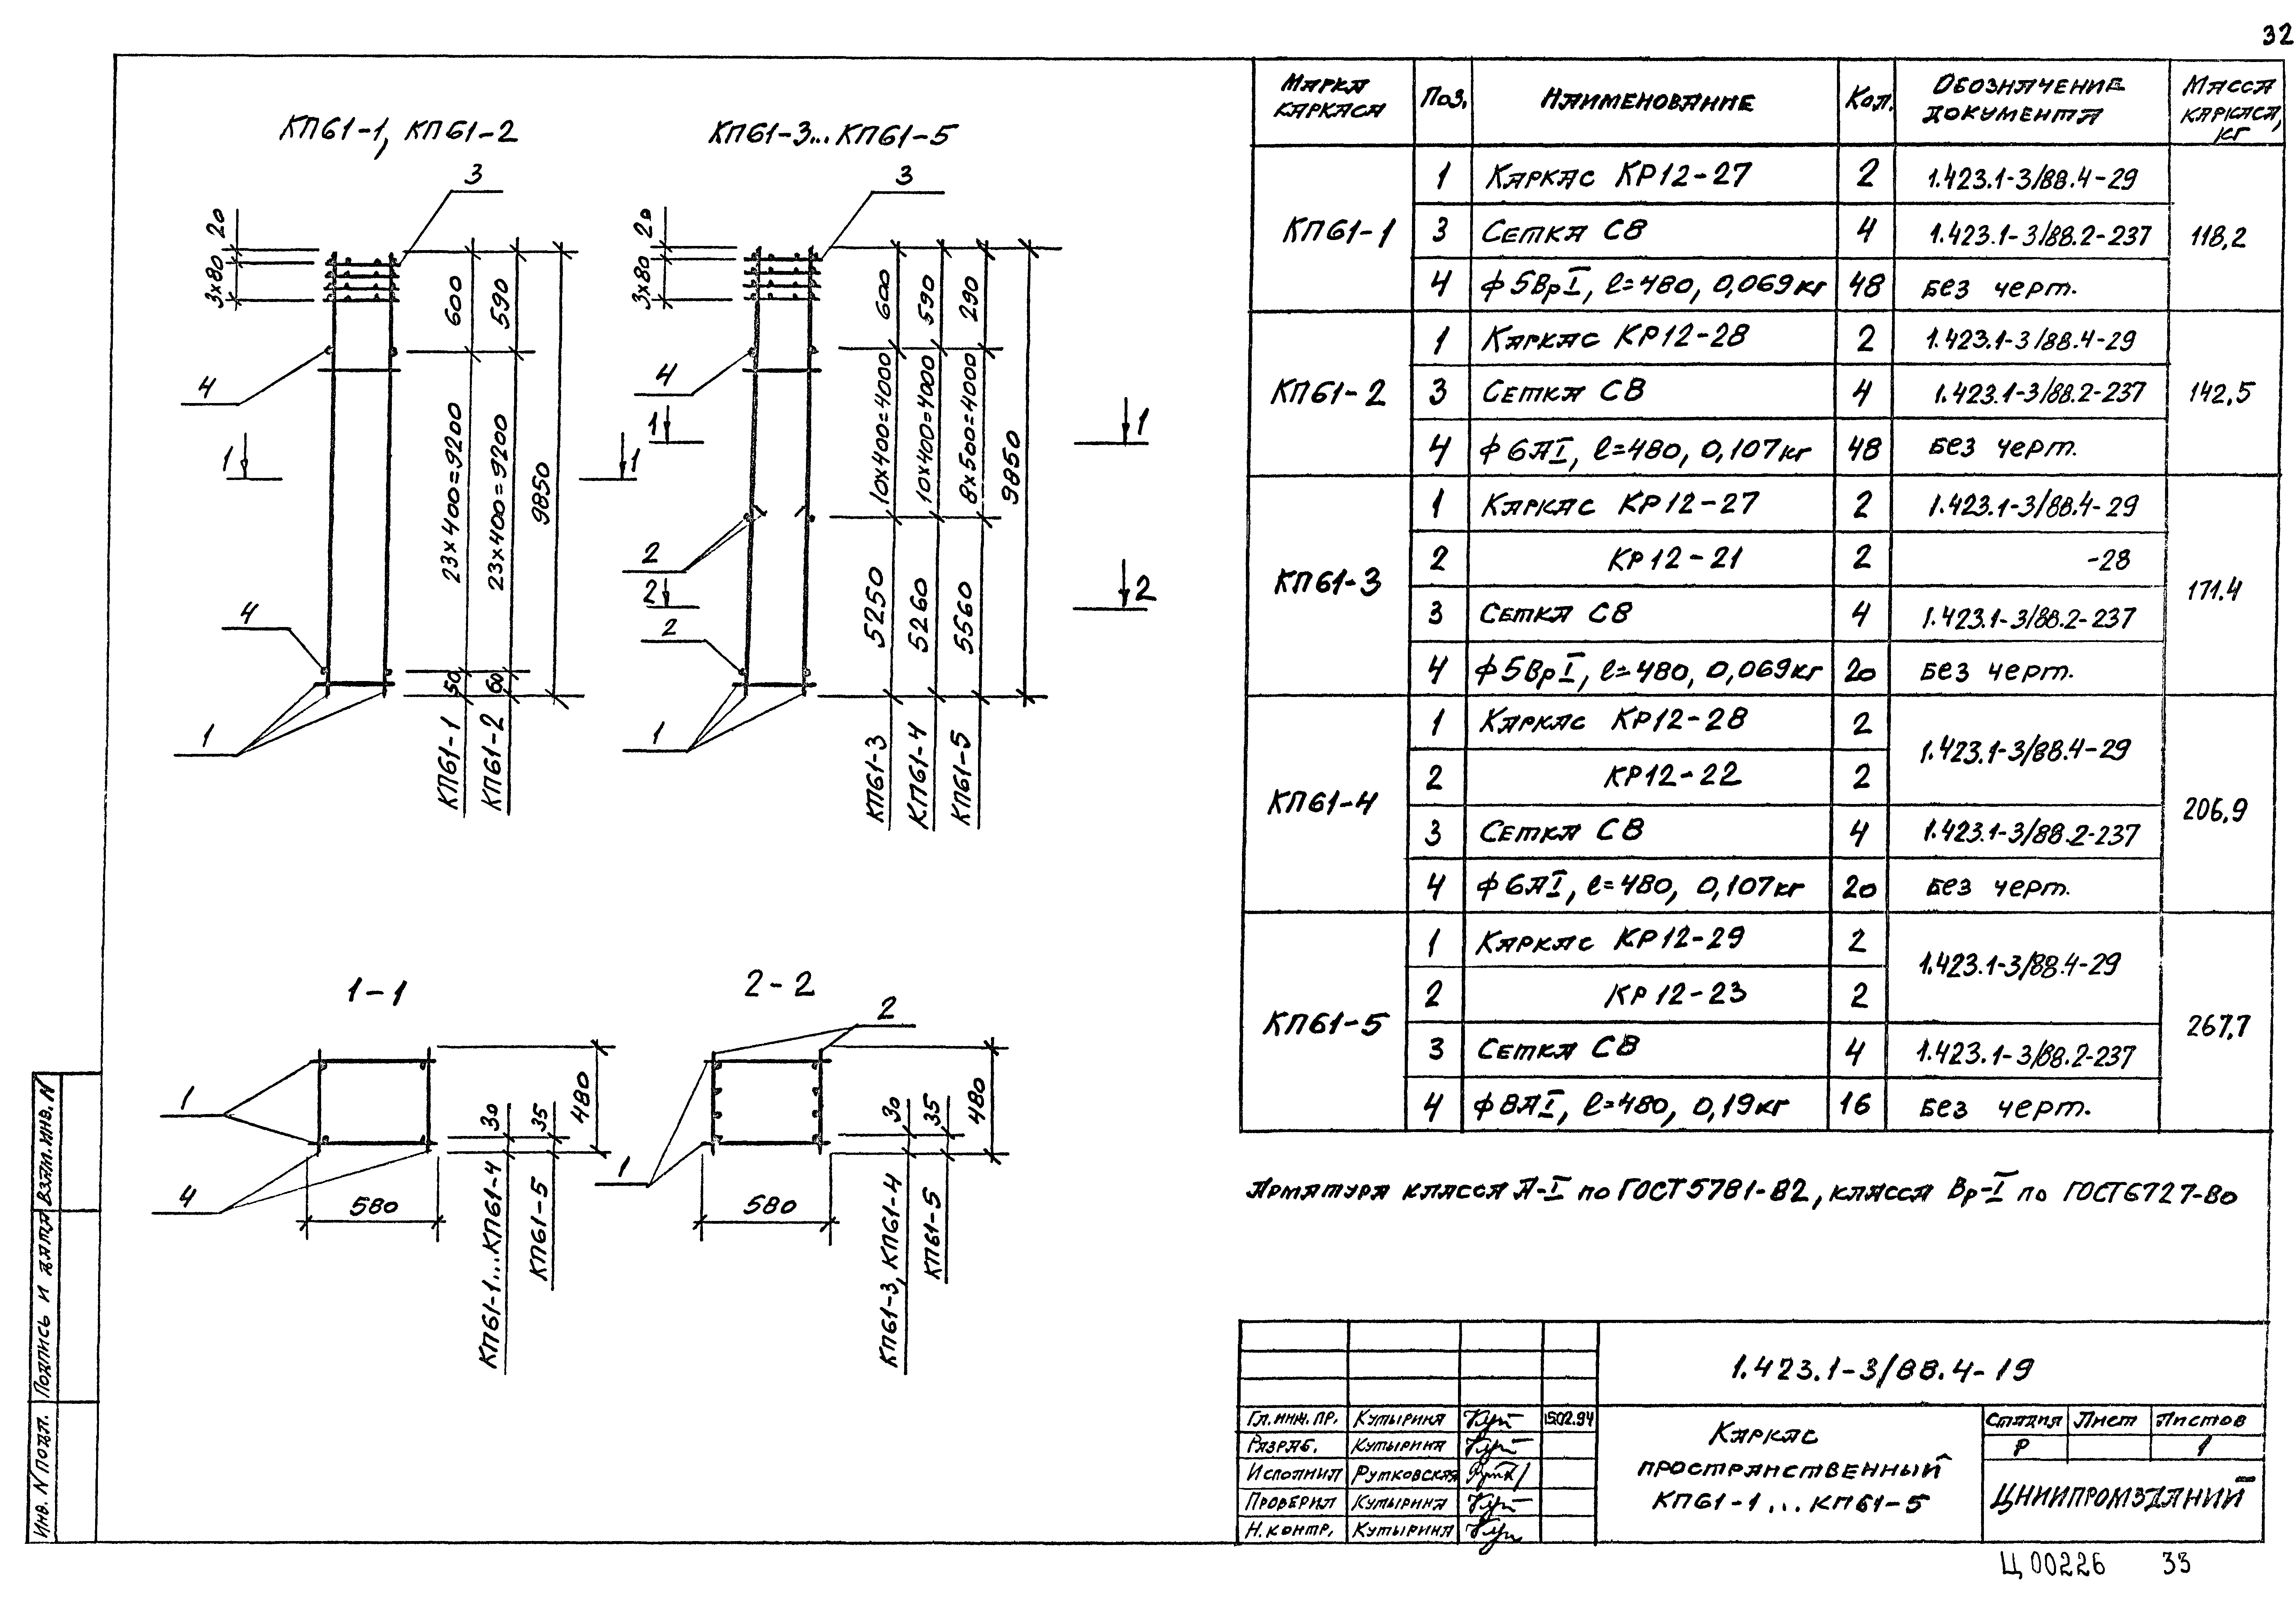 32
КП61-1, КП61-2
КП61-3...КП61-5
3
20
3х80
600
590
4
23х400=9200
23х400=9200
9850
1
1
4
50
60
1
КП61-1
КП61-2
3
20
3х80
600
590
290
4
10х400=4000
10х400=4000
8х500=4000
9850
1
1
2
2
2
2
5250
5260
5560
1
КП61-3
КП61-4
КП61-5
1-1
1
4
580
30
35
480
КП61-1...КП61-4
КП61-5
2-2
2
1
580
30
35
480
КП61-3, КП61-4
КП61-5
Марка каркаса | Поз. | Наименование | Кол. | Обозначение документа | Масса каркаса, кг
КП61-1 118,2
1 Каркас КР12-27 2 1.423.1-3/88.4-29
3 Сетка С8 4 1.423.1-3/88.2-237
4 ϕ5ВрI, l=480, 0,069кг 48 Без черт.
КП61-2 142,5
1 Каркас КР12-28 2 1.423.1-3/88.4-29
3 Сетка С8 4 1.423.1-3/88.2-237
4 ϕ6АI, l=480, 0,107кг 48 Без черт.
КП61-3 171.4
1 Каркас КР12-27 2 1.423.1-3/88.4-29
2 КР12-21 2 -28
3 Сетка С8 4 1.423.1-3/88.2-237
4 ϕ5ВрI, l=480, 0,069кг 20 Без черт.
КП61-4 206,9
1 Каркас КР12-28 2 1.423.1-3/88.4-29
2 КР12-22 2
3 Сетка С8 4 1.423.1-3/88.2-237
4 ϕ6АI, l=480, 0,107кг 20 Без черт.
КП61-5 267,7
1 Каркас КР12-29 2 1.423.1-3/88.4-29
2 КР12-23 2
3 Сетка С8 4 1.423.1-3/88.2-237
4 ϕ8АI, l=480, 0,19кг 16 Без черт.
Арматура класса А-I по ГОСТ5781-82, класса Вр-I по ГОСТ6727-80
1.423.1-3/88.4-19
Гл.инж.пр. Кутырина 15.02.94
Разраб. Кутырина
Исполнил Рутковская
Проверил Кутырина
Н.контр. Кутырина
Каркас
пространственный
КП61-1...КП61-5
Стадия Лист Листов
Р 1
ЦНИИПРОМЗДАНИЙ
Инв. N подл. Подпись и дата Взам.инв. N
Ц00226 33